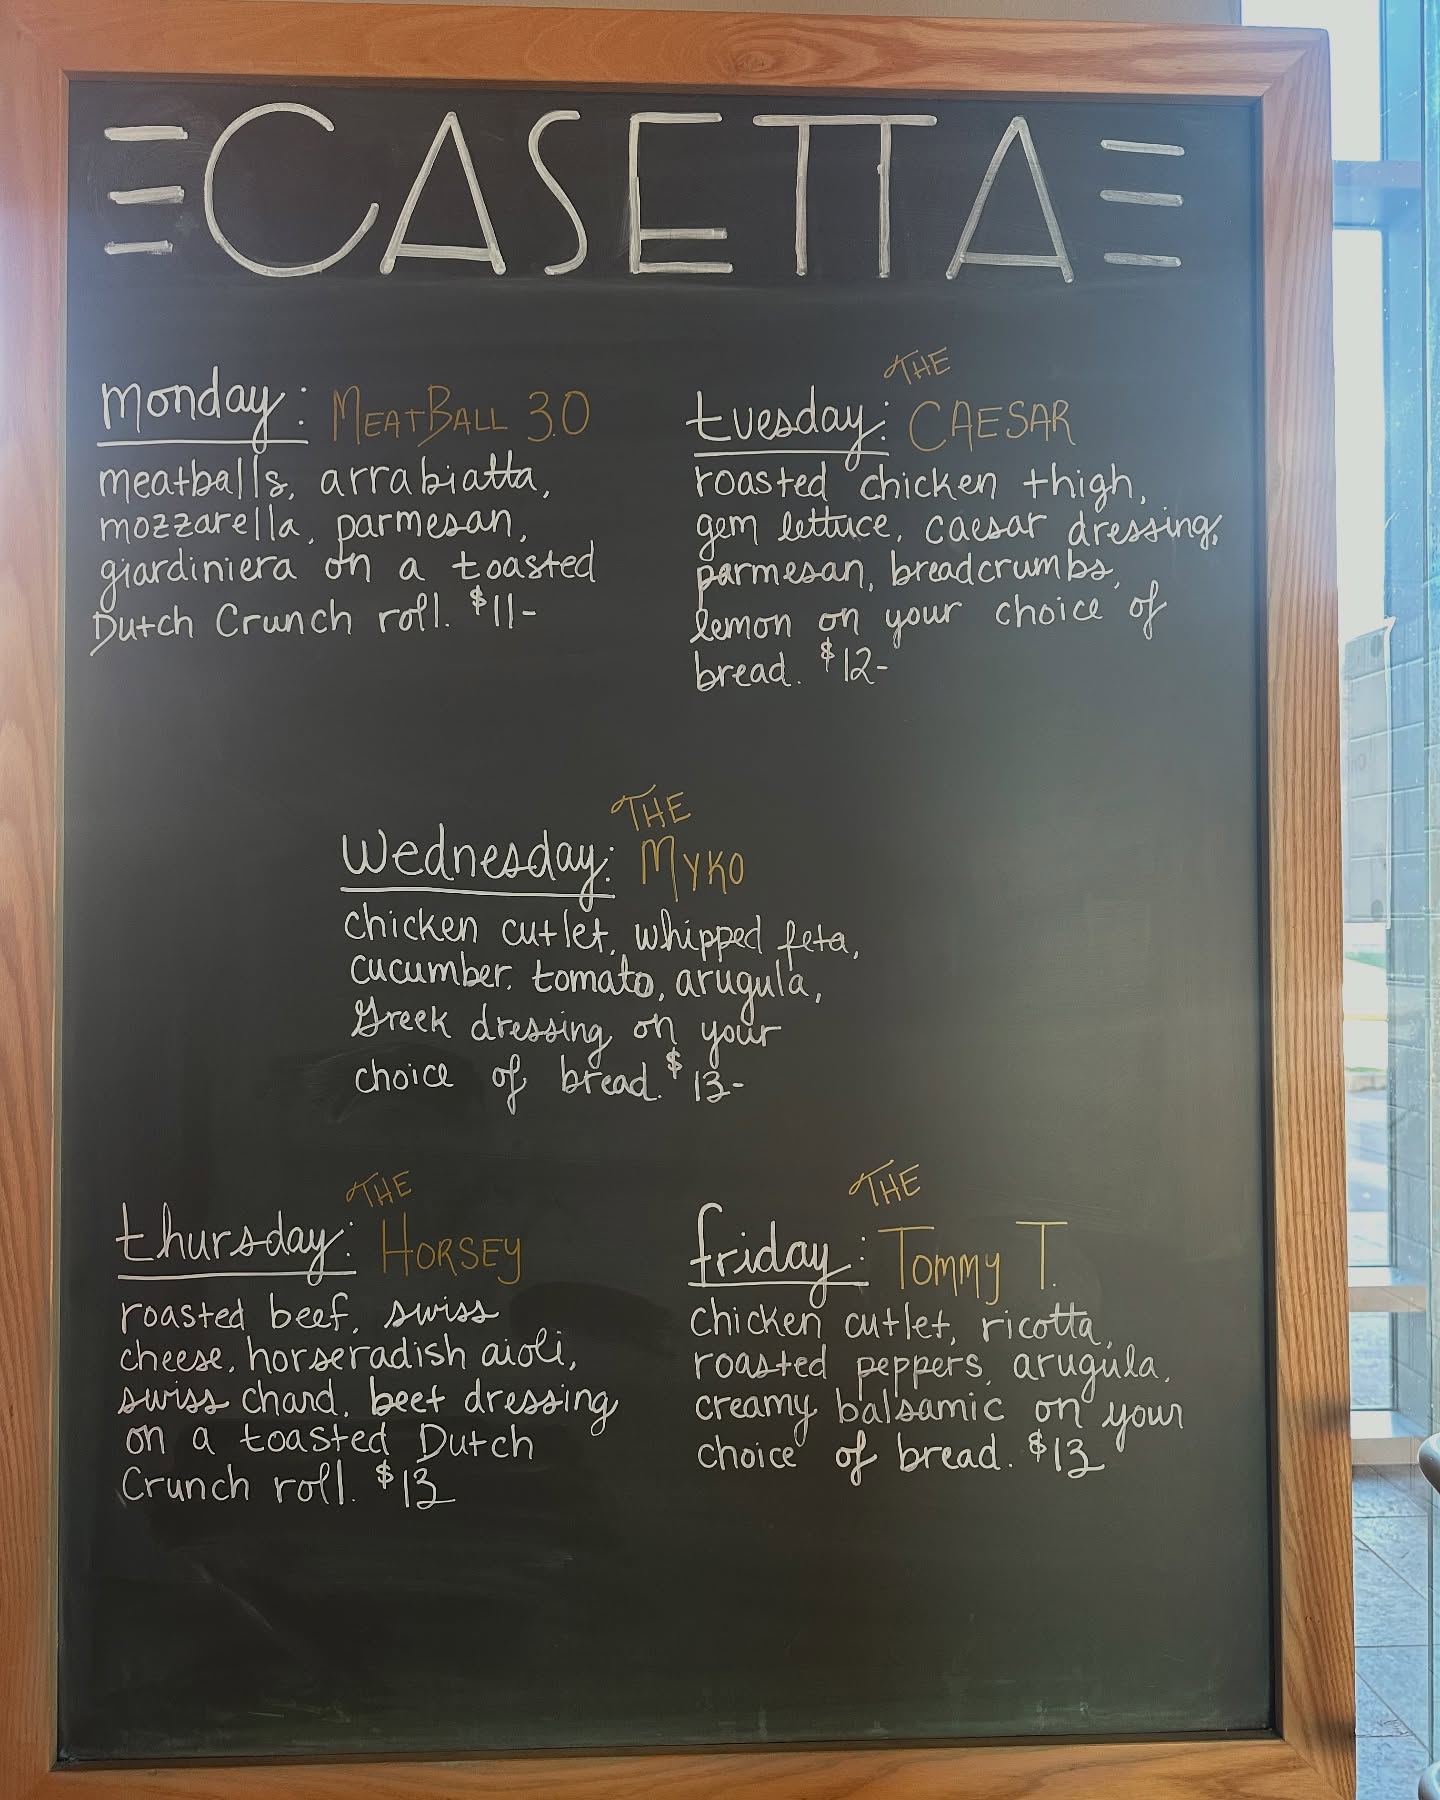 CASETTA
monday: MEATBALL 3.0
meatballs, arrabiatta,
mozzarella, parmesan,
giardiniera on a toasted
Dutch Crunch roll. $11-
THE
tuesday: CAESAR
roasted chicken thigh,
gem lettuce, caesar dressing,
parmesan, breadcrumbs,
lemon on your choice of
bread. $12-
THE
Wednesday: MYKO
chicken cutlet, whipped feta,
cucumber, tomato, arugula,
Greek dressing on your
choice of bread. $13-
THE
thursday: HORSEY
roasted beef, swiss
cheese, horseradish aioli,
swiss chard, beet dressing
on a toasted Dutch
Crunch roll. $13
THE
friday: TOMMY T.
chicken cutlet, ricotta,
roasted peppers, arugula,
creamy balsamic on your
choice of bread. $13